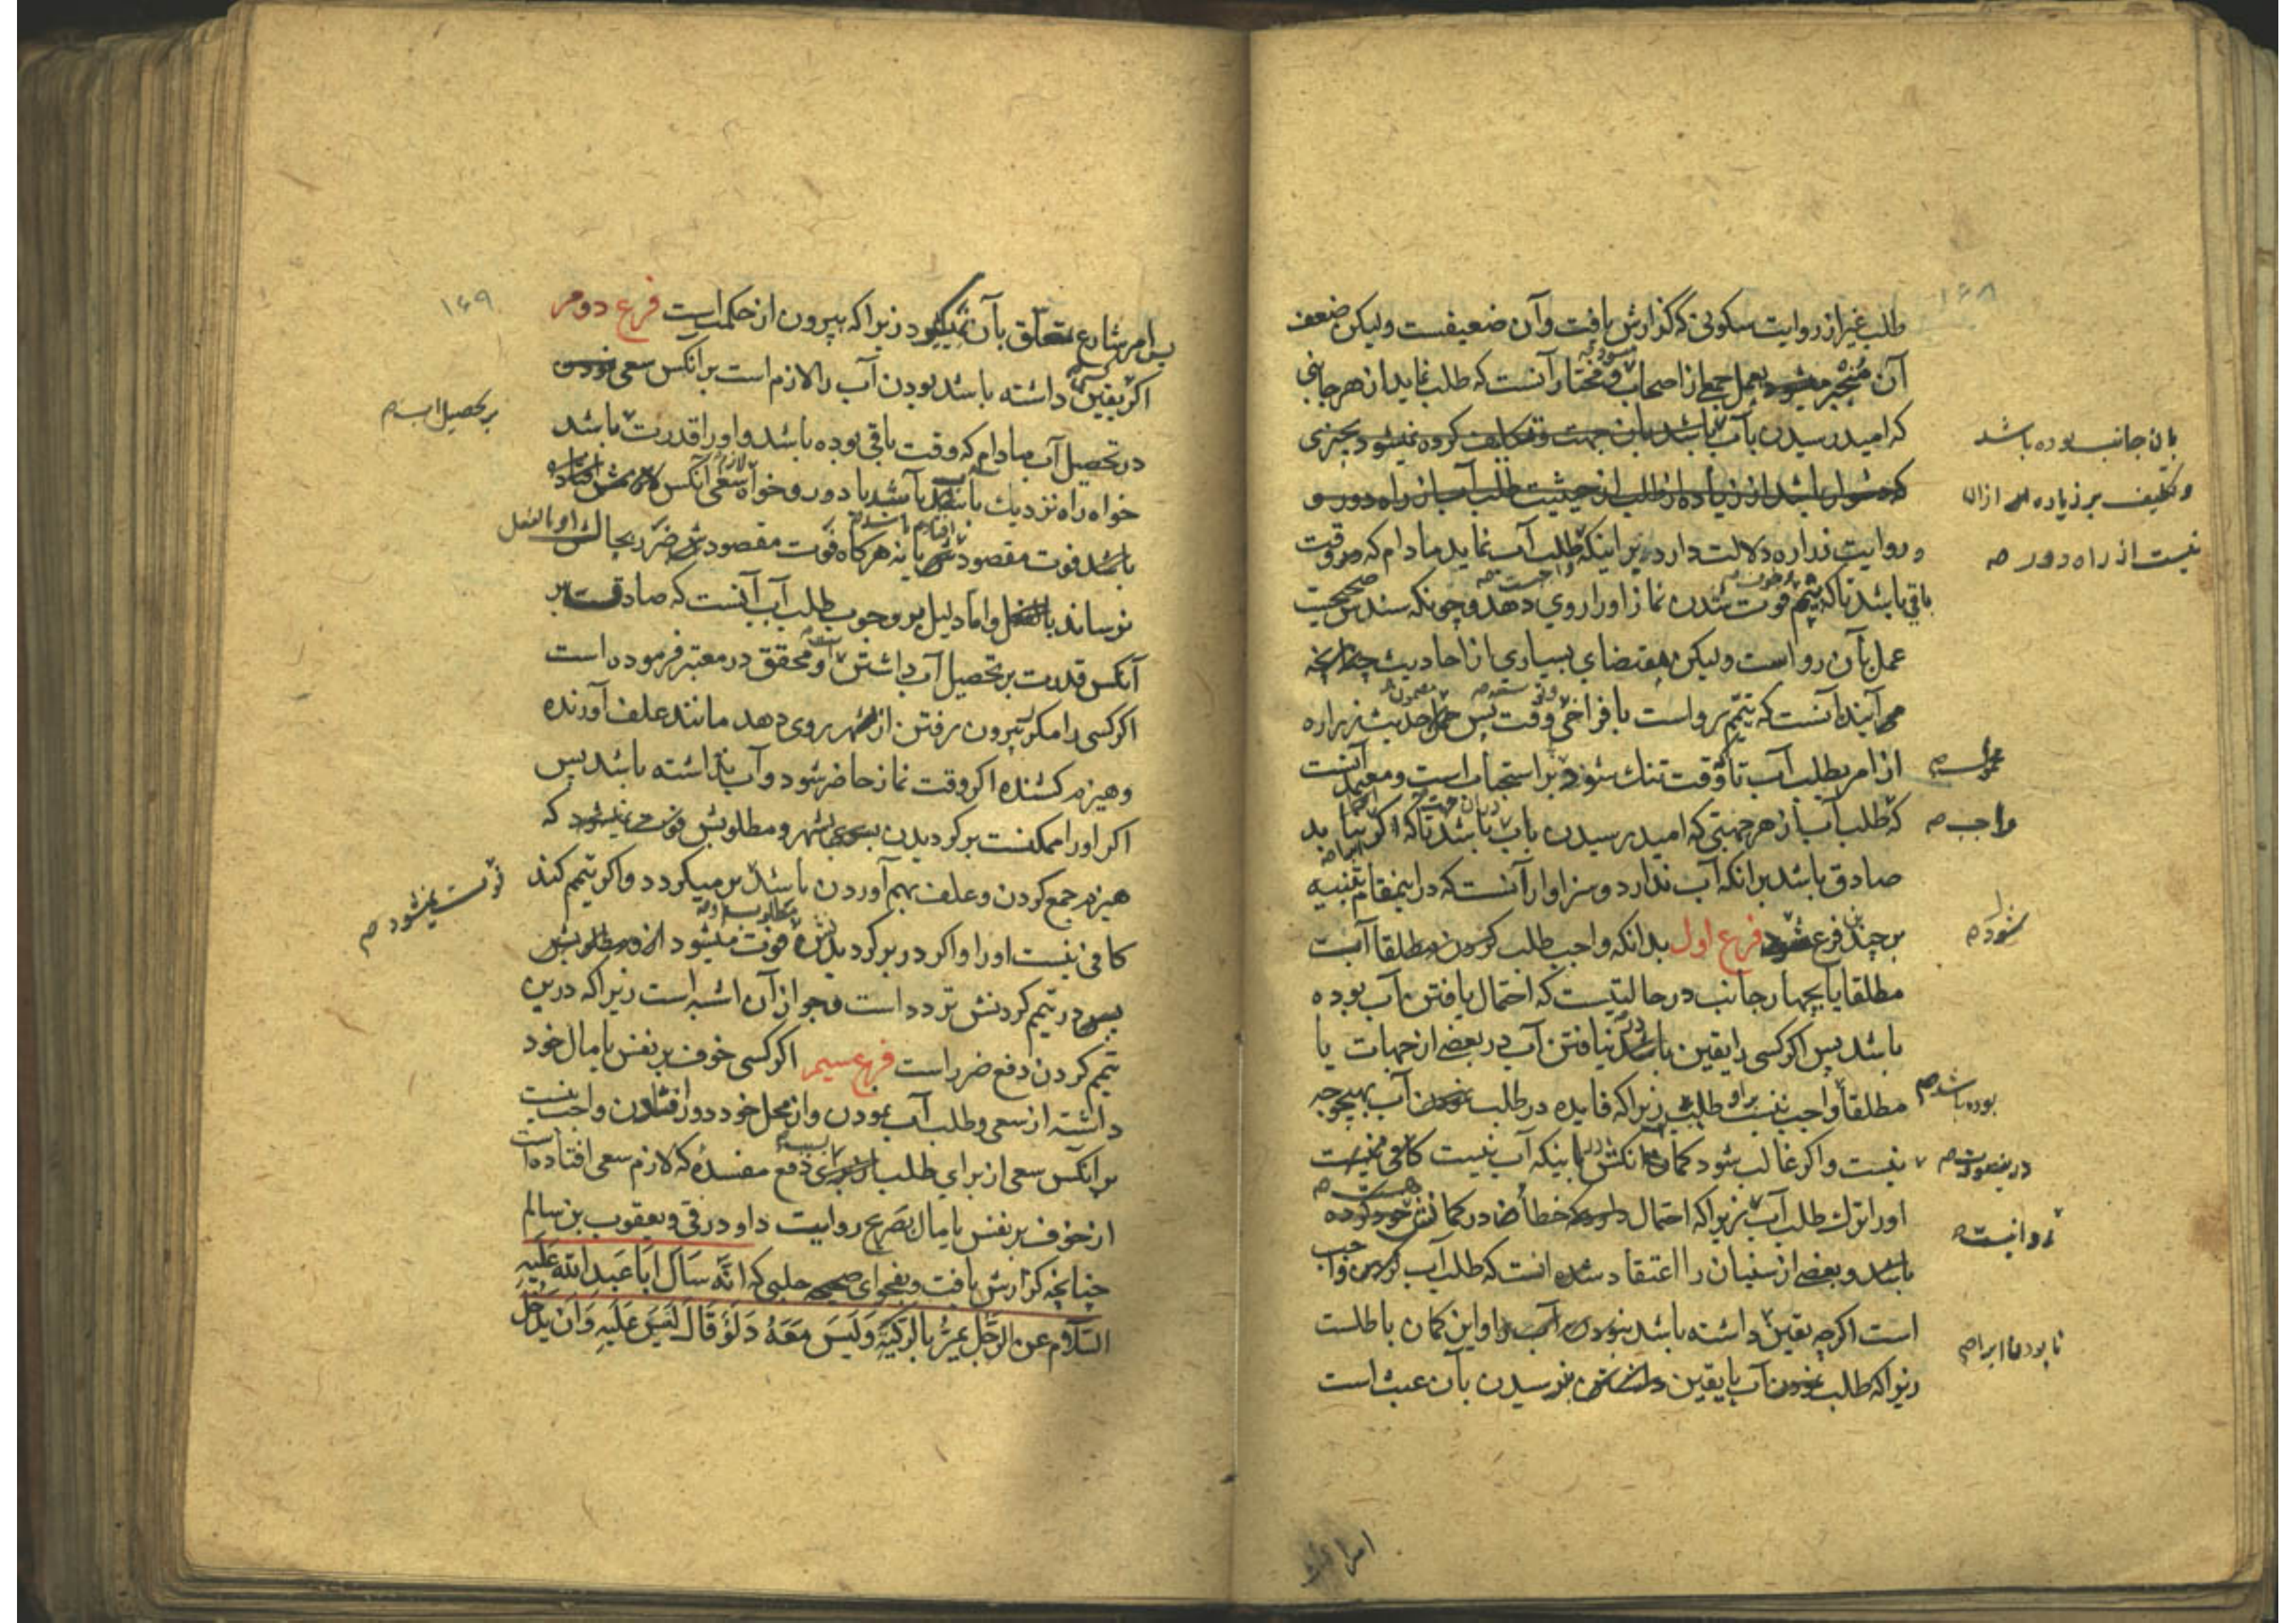 ۱۶۸
طلب غیر از روایت سکونی که گذارش یافت و آن ضعیفست ولیکن ضعف
آن منجبر میشود بعمل جمعی از اصحاب و مختار آنست که طلب نماید از هر جانبی
که امید رسیدن بآب باشد بان جهت و تکلیف کرده نمیشود بچیزی
بان جانب بوده باشد
که دشوار باشد از زیاده از طلب از حیثیت طلب آب از راه دور و
و تکلیف بر زیاده از ان
و روایت زراره دلالت دارد بر اینکه طلب آب نماید مادام که وقت
نیست از راه دور صه
باقی باشد تا که فوت شدن نماز او را روی دهد و چونکه سندش صحیحست
عمل بآن رواست ولیکن مقتضای بسیاری از احادیث چنانچه
می آیند آنست که تیمم رواست با فراخی وقت پس حمل حدیث زراره
از امر بطلب آب تا وقت تنک شود بر استحباب است و معتمد آنست
که طلب آب از هر جهتی که امید رسیدن باب باشد تا که اکر نیابد
واجب صه
صادق باشد برانکه آب ندارد و سزاوار آنست که در اینمقام تنبیه
بر چند فرع شود فرع اول بدانکه واجب طلب کردن مطلقا آبست
شود صه
مطلقا یا بچهار جانب در حالتیست که احتمال یافتن آب بوده
باشد پس اکر کسی را یقین باشد نیافتن آب در بعضی از جهات یا
مطلقا واجب نیست براو طلب زیراکه فایده در طلب نمودن آب بهیچوجه
بوده باشد صه
نیست و اکر غالب شود کمان آنکس باینکه آب نیست کافی نیست
درینصورت صه
او را ترک طلب آب زیراکه احتمال دارد که خطا در کمانش خود کرده
روا نیست صه
باشد و بعضی از سنیان را اعتقاد شده انست که طلب آب کردن واجب
است اکرچه یقین داشته باشد نبودن آب و این کمان باطلست
نابودن
زیراکه طلب نمودن آب با یقین داشتن نرسیدن بآن عبث است
۱۶۹
پس امر شارع متعلق بآن نمیشود زیراکه بیرون از حکمتست فرع دوم
اکر یقین داشته باشد بودن آب را لازم است برانکس سعی نمودن
بر تحصیل اب صه
در تحصیل آب مادام که وقت باقی بوده باشد و او را قدرت باشد
خواه راه نزدیک باشد یا دور و خواه سعی آنکس
باشد فوت مقصود یا نه هرکاه فوت مقصودش ضرر بحالش
نرساند بالفعل و اما دلیل بر وجوب طلب آب آنست که صادقست بر
آنکس قدرت بر تحصیل آب داشتن و محقق در معتبر فرموده است
اکر کسی را مکرر بیرون رفتن از شهر روی دهد مانند علف آورنده
و هیزم کشنده اکر وقت نماز حاضر شود و آب نداشته باشد پس
اکر او را ممکنست برکردیدن بشهر و مطلوبش فوت نمیشود که
هیزم جمع کردن و علف بهم آوردن باشد بر میکردد و اکر تیمم کند
فوت نمیشود صه
کافی نیست او را و اکر در برکردیدنش فوت میشود از و مطلوبش
پس در تیمم کردنش تردد است و جواز آن اشبه است زیراکه درین
تیمم کردن دفع ضرر است فرع سیم اکر کسی خوف بر نفس یا مال خود
داشته از سعی و طلب آب نمودن و از محل خود دور افتادن واجب نیست
برانکس سعی از برای طلب از برای دفع مفسدهٔ که لازم سعی افتاده است
از خوف بر نفس یا مال بصریح روایت داود رقی و یعقوب بن سالم
چنانچه کزارش یافت و بفحوای صحیحه حلبی که انّه سأل ابا عبد الله علیه
السلام عن الرجل یمرّ بالرکیة و لیس معه دلو قال لیس علیه و ان یدخل